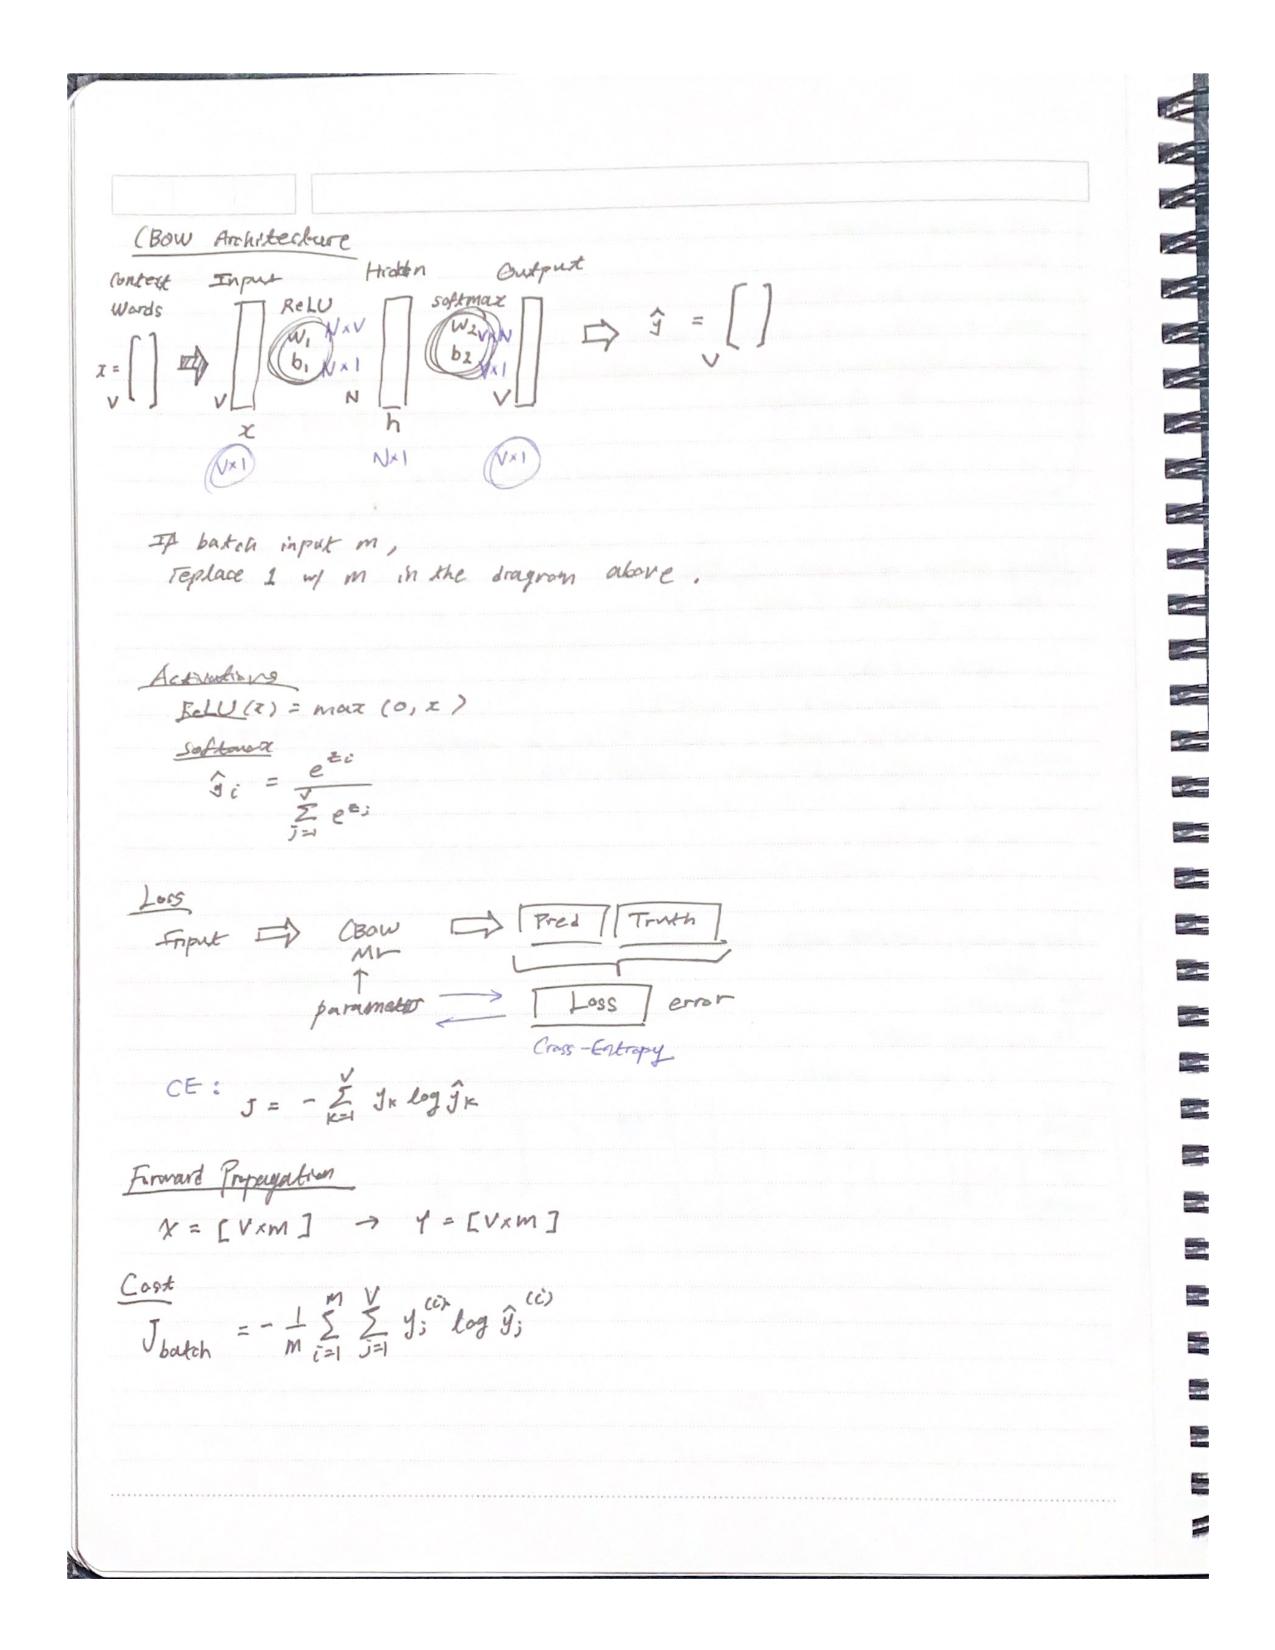 CBOW Architecture
Context Words
Input
Hidden
Output
ReLU
softmax
x = [ ]
V
V
x
V×1
W₁ N×V
b₁ N×1
N
h
N×1
W₂ V×N
b₂ V×1
V
V×1
ŷ = [ ]
V
If batch input m,
replace 1 w/ m in the diagram above.
Activations
ReLU(x) = max (0, x)
softmax
ŷᵢ = e^{zᵢ} / Σ_{j=1}^{V} e^{zⱼ}
Loss
Input ⇨ CBOW ⇨ Pred Truth
ML
↑
parameters
Loss error
Cross-Entropy
CE : J = - Σ_{k=1}^{V} yₖ log ŷₖ
Forward Propagation
X = [V×m] → Y = [V×m]
Cost
J_batch = - 1/m Σ_{i=1}^{m} Σ_{j=1}^{V} yⱼ^{(i)} log ŷⱼ^{(i)}